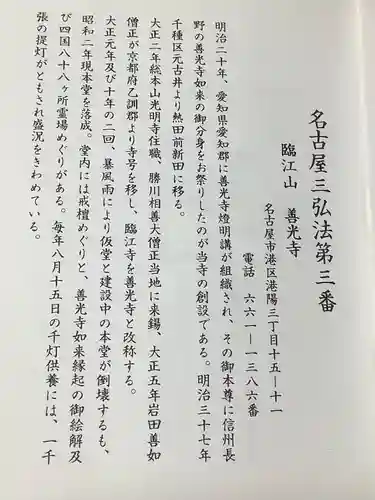 名古屋三弘法第三番
臨江山　善光寺
名古屋市港区港陽三丁目十五ー十一
電話　六六一ー一三八六番
明治二十年、愛知県愛知郡に善光寺燈明講が組織され、その御本尊に信州長
野の善光寺如来の御分身をお祭りしたのが当寺の創設である。明治三十七年
千種区元古井より熱田前新田に移る。
大正二年総本山光明寺住職、勝川相善大僧正当地に来錫、大正五年岩田善如
僧正が京都府乙訓郡より寺号を移し、臨江寺を善光寺と改称する。
大正元年及び十年の二回、暴風雨により仮堂と建設中の本堂が倒壊するも、
昭和二年現本堂を落成。堂内には戒壇めぐりと、善光寺如来縁起の御絵解及
び四国八十八ヶ所霊場めぐりがある。毎年八月十五日の千灯供養には、一千
張の提灯がともされ盛況をきわめている。